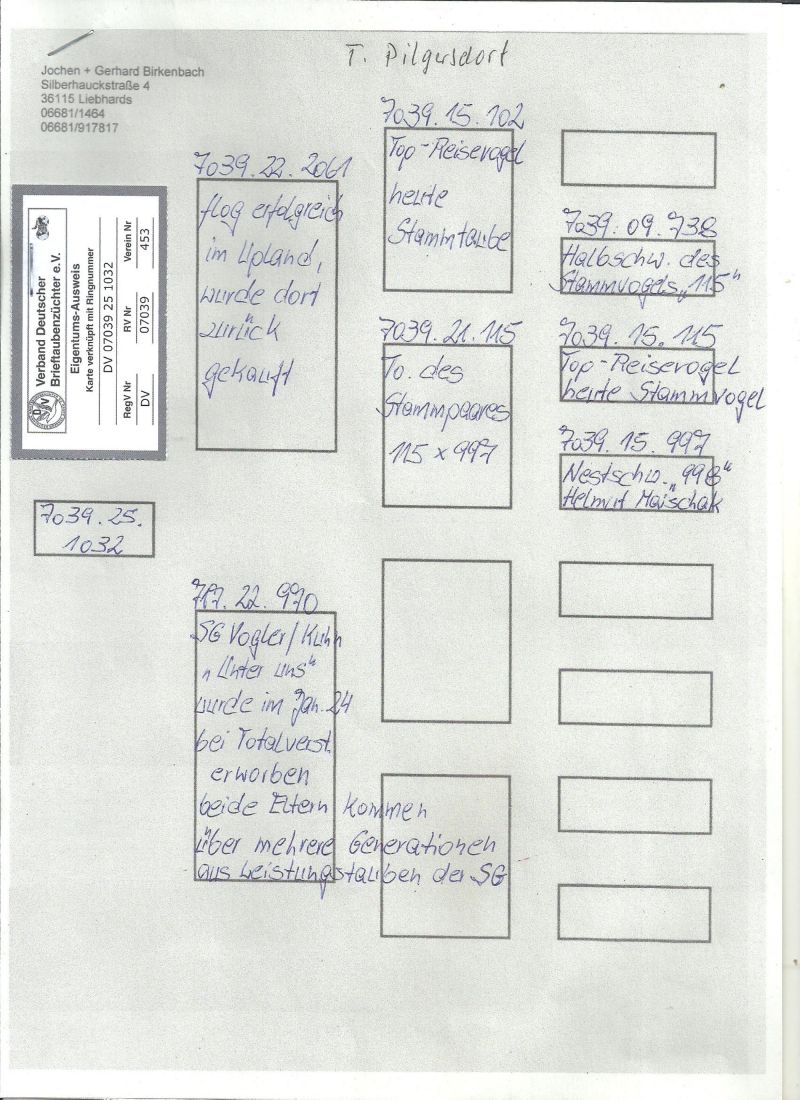 T. Pilgersdorf
Jochen + Gerhard Birkenbach
Silberhauckstraße 4
36115 Liebhards
06681/1464
06681/917817
Verband Deutscher
Brieftaubenzüchter e.V.
Eigentums-Ausweis
Karte verknüpft mit Ringnummer
DV 07039 25 1032
RegV Nr
RV Nr
Verein Nr
DV
07039
453
7039.25.
1032
7039.22.2061
flog erfolgreich
im Upland,
wurde dort
zurück
gekauft
717.22.970
SG Vogler/Kuhn
„Unter uns“
wurde im Jan. 24
bei Totalverst.
erworben
beide Eltern kommen
über mehrere Generationen
aus Leistungstauben der SG
7039.15.102
Top-Reisevogel
heute
Stammtaube
7039.21.115
To. des
Stammpaares
115 x 997
7039.09.738
Halbschw. des
Stammvogels „115“
7039.15.115
Top-Reisevogel
heute Stammvogel
7039.15.997
Nestschw. „998“
Helmut Maischak